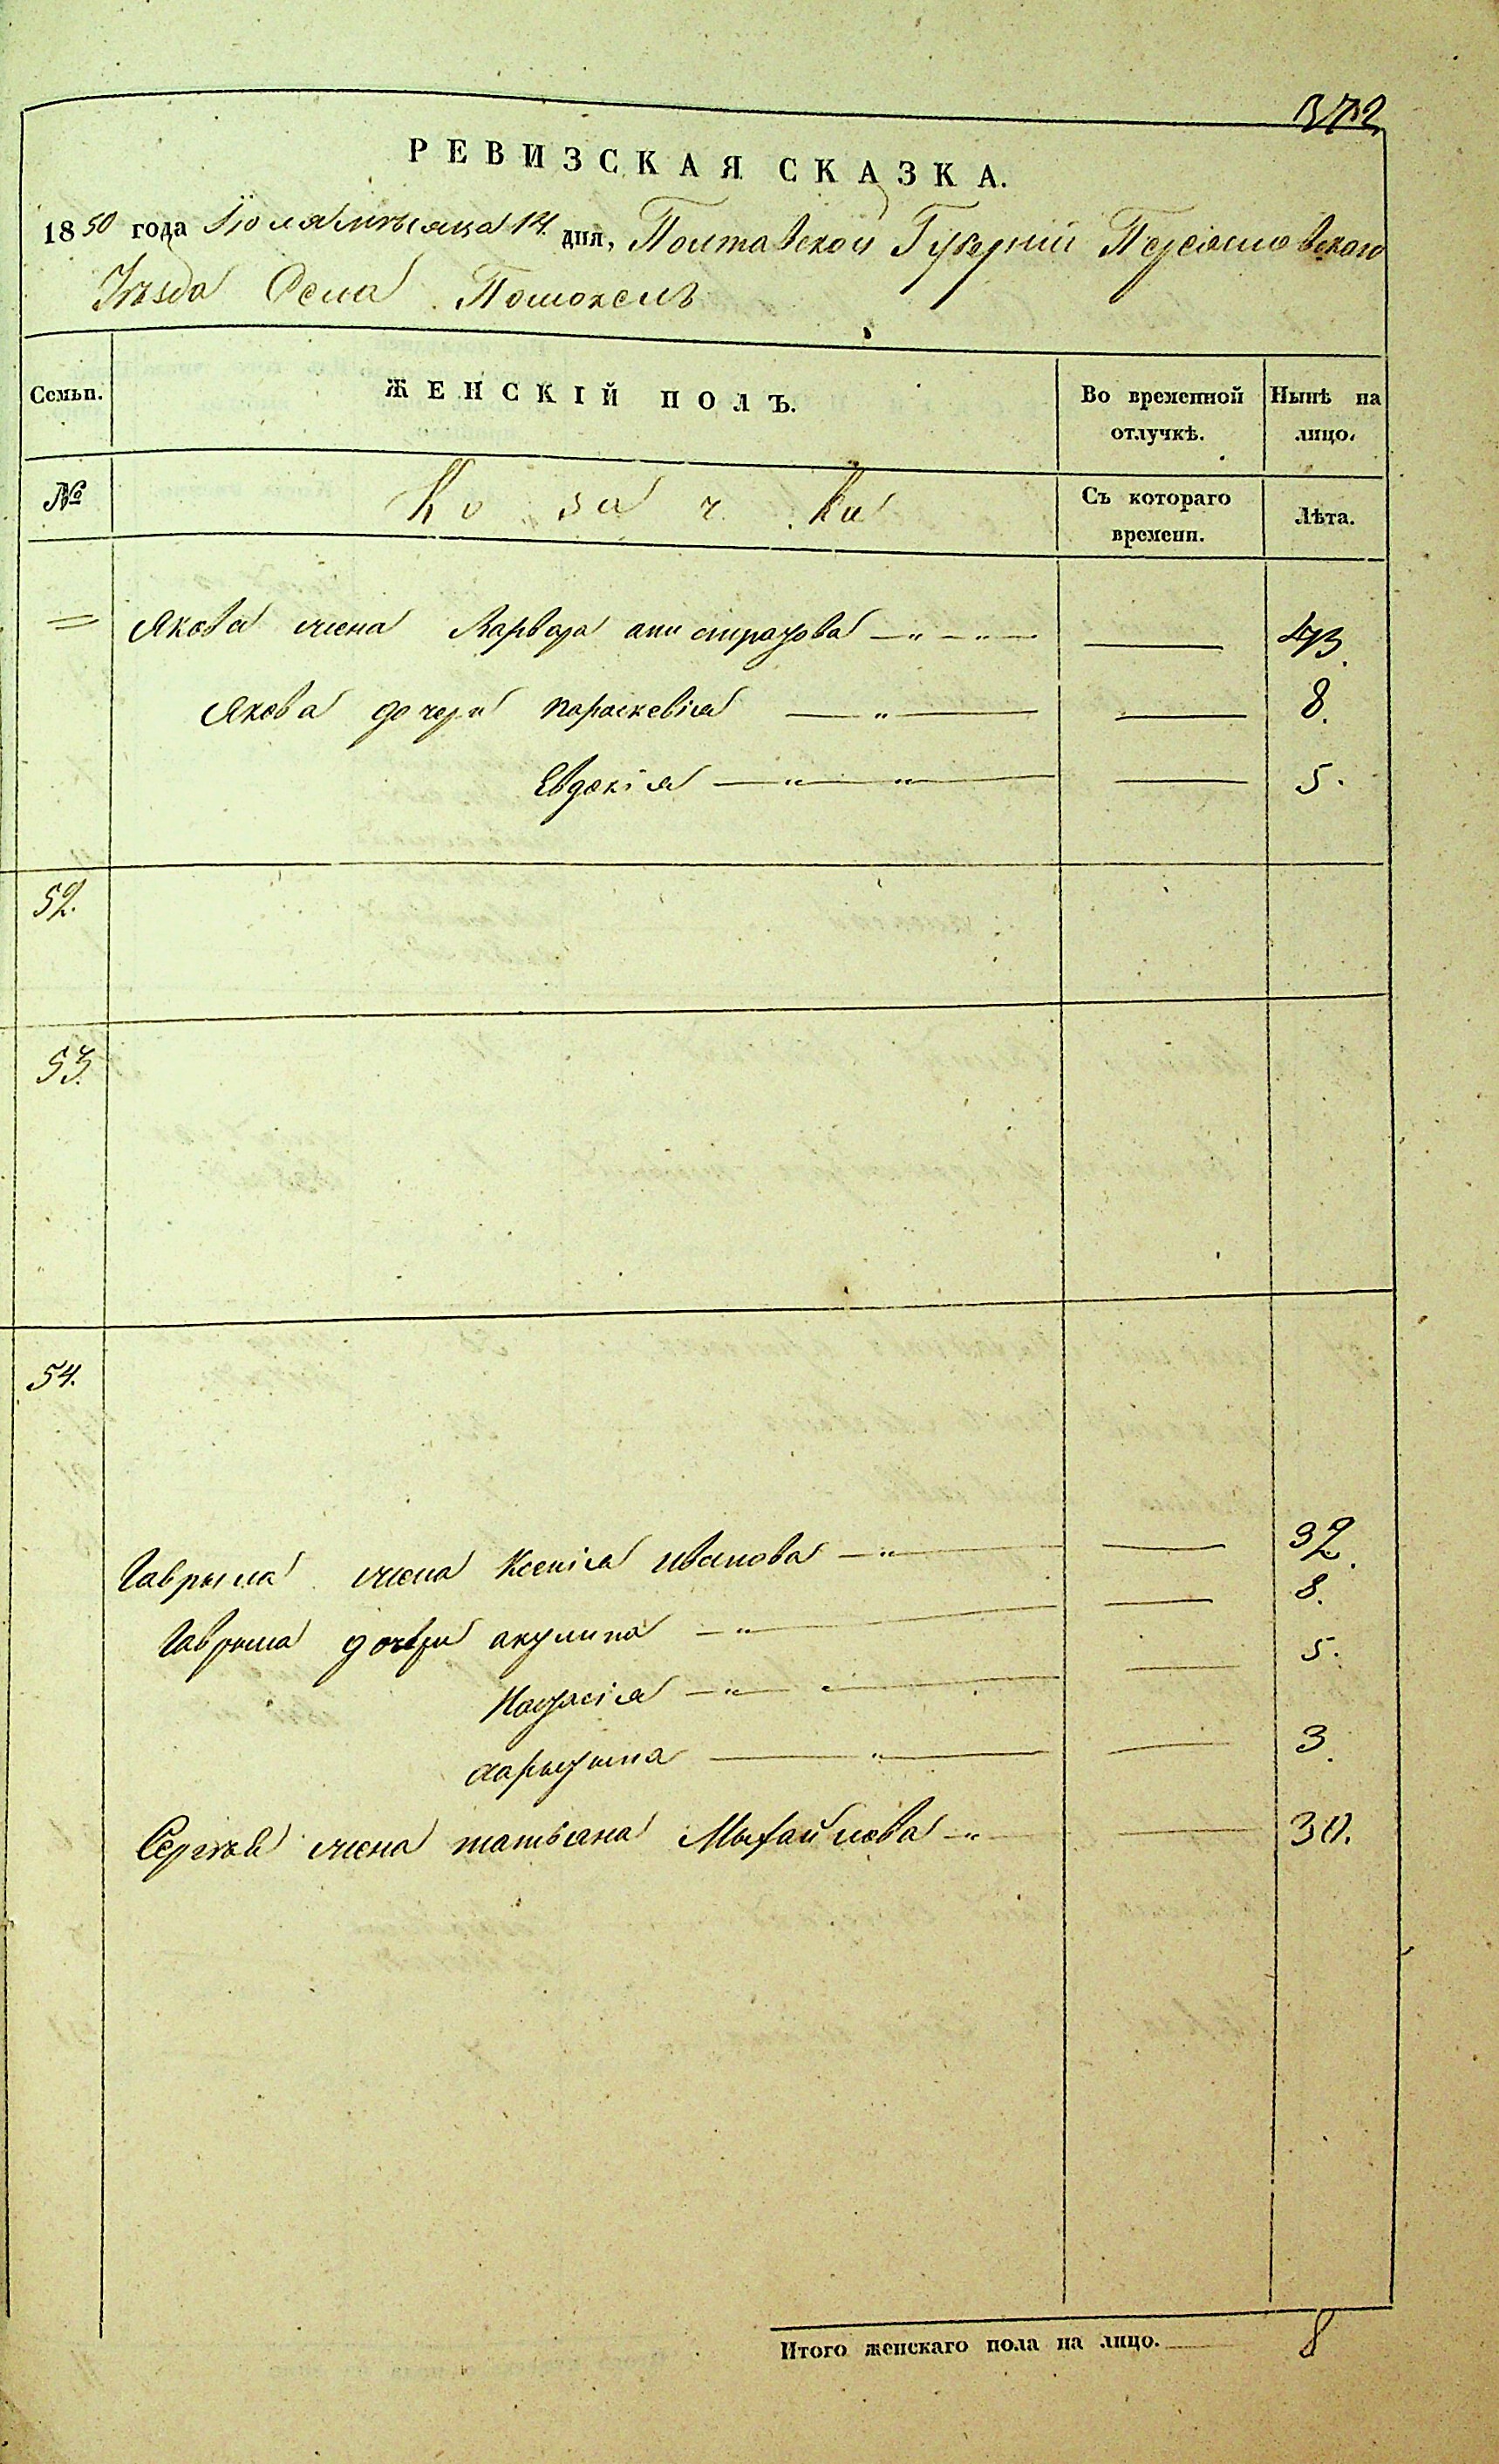 372
РЕВИЗСКАЯ СКАЗКА.
1850 года Іюля мѣсяца 14. дня, Полтавской Губерніи Переяславскаго
Уѣзда Села Помоклъ
Семьи. ЖЕНСКІЙ ПОЛЪ. Во временной отлучкѣ. Нынѣ на лицо.
№ Козачки Съ котораго времени. Лѣта.
Якова жена Варвара 43.
Якова дочери параскевія 8.
Евдокія 5.
52.
53.
54.
Гаврыла жена Ксенія иванова 32.
Гаврыла дочери акулина 8.
Настасія 5.
3.
Сергѣя жена татьяна Мыхайлова 30.
Итого женскаго пола на лицо. 8